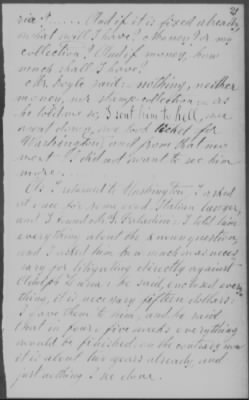 25
rica?..... And if it is fixed already
what will I have? Money? or my
collection? And if money, how
much shall I have?
Mr. Boyle said: nothing, neither
money, nor stamp collection — as
he told me so, I sent him to hell,
went down, we took ticket for
Washington, and from that mo-
ment I did not want to see him
more.
As I returned to Washington, I asked
at once for some good Italian lawyer
and I found Mr. : I told him
everything about the known question,
and I asked him how much was neces-
sary for litigating directly against
Adolph : he said, enclosed every
thing, it is necessary fifteen dollars:
I gave them to him, and he said
that in four, five weeks everything
would be finished: on the contrary now
it is about two years already, and
just nothing I see done.